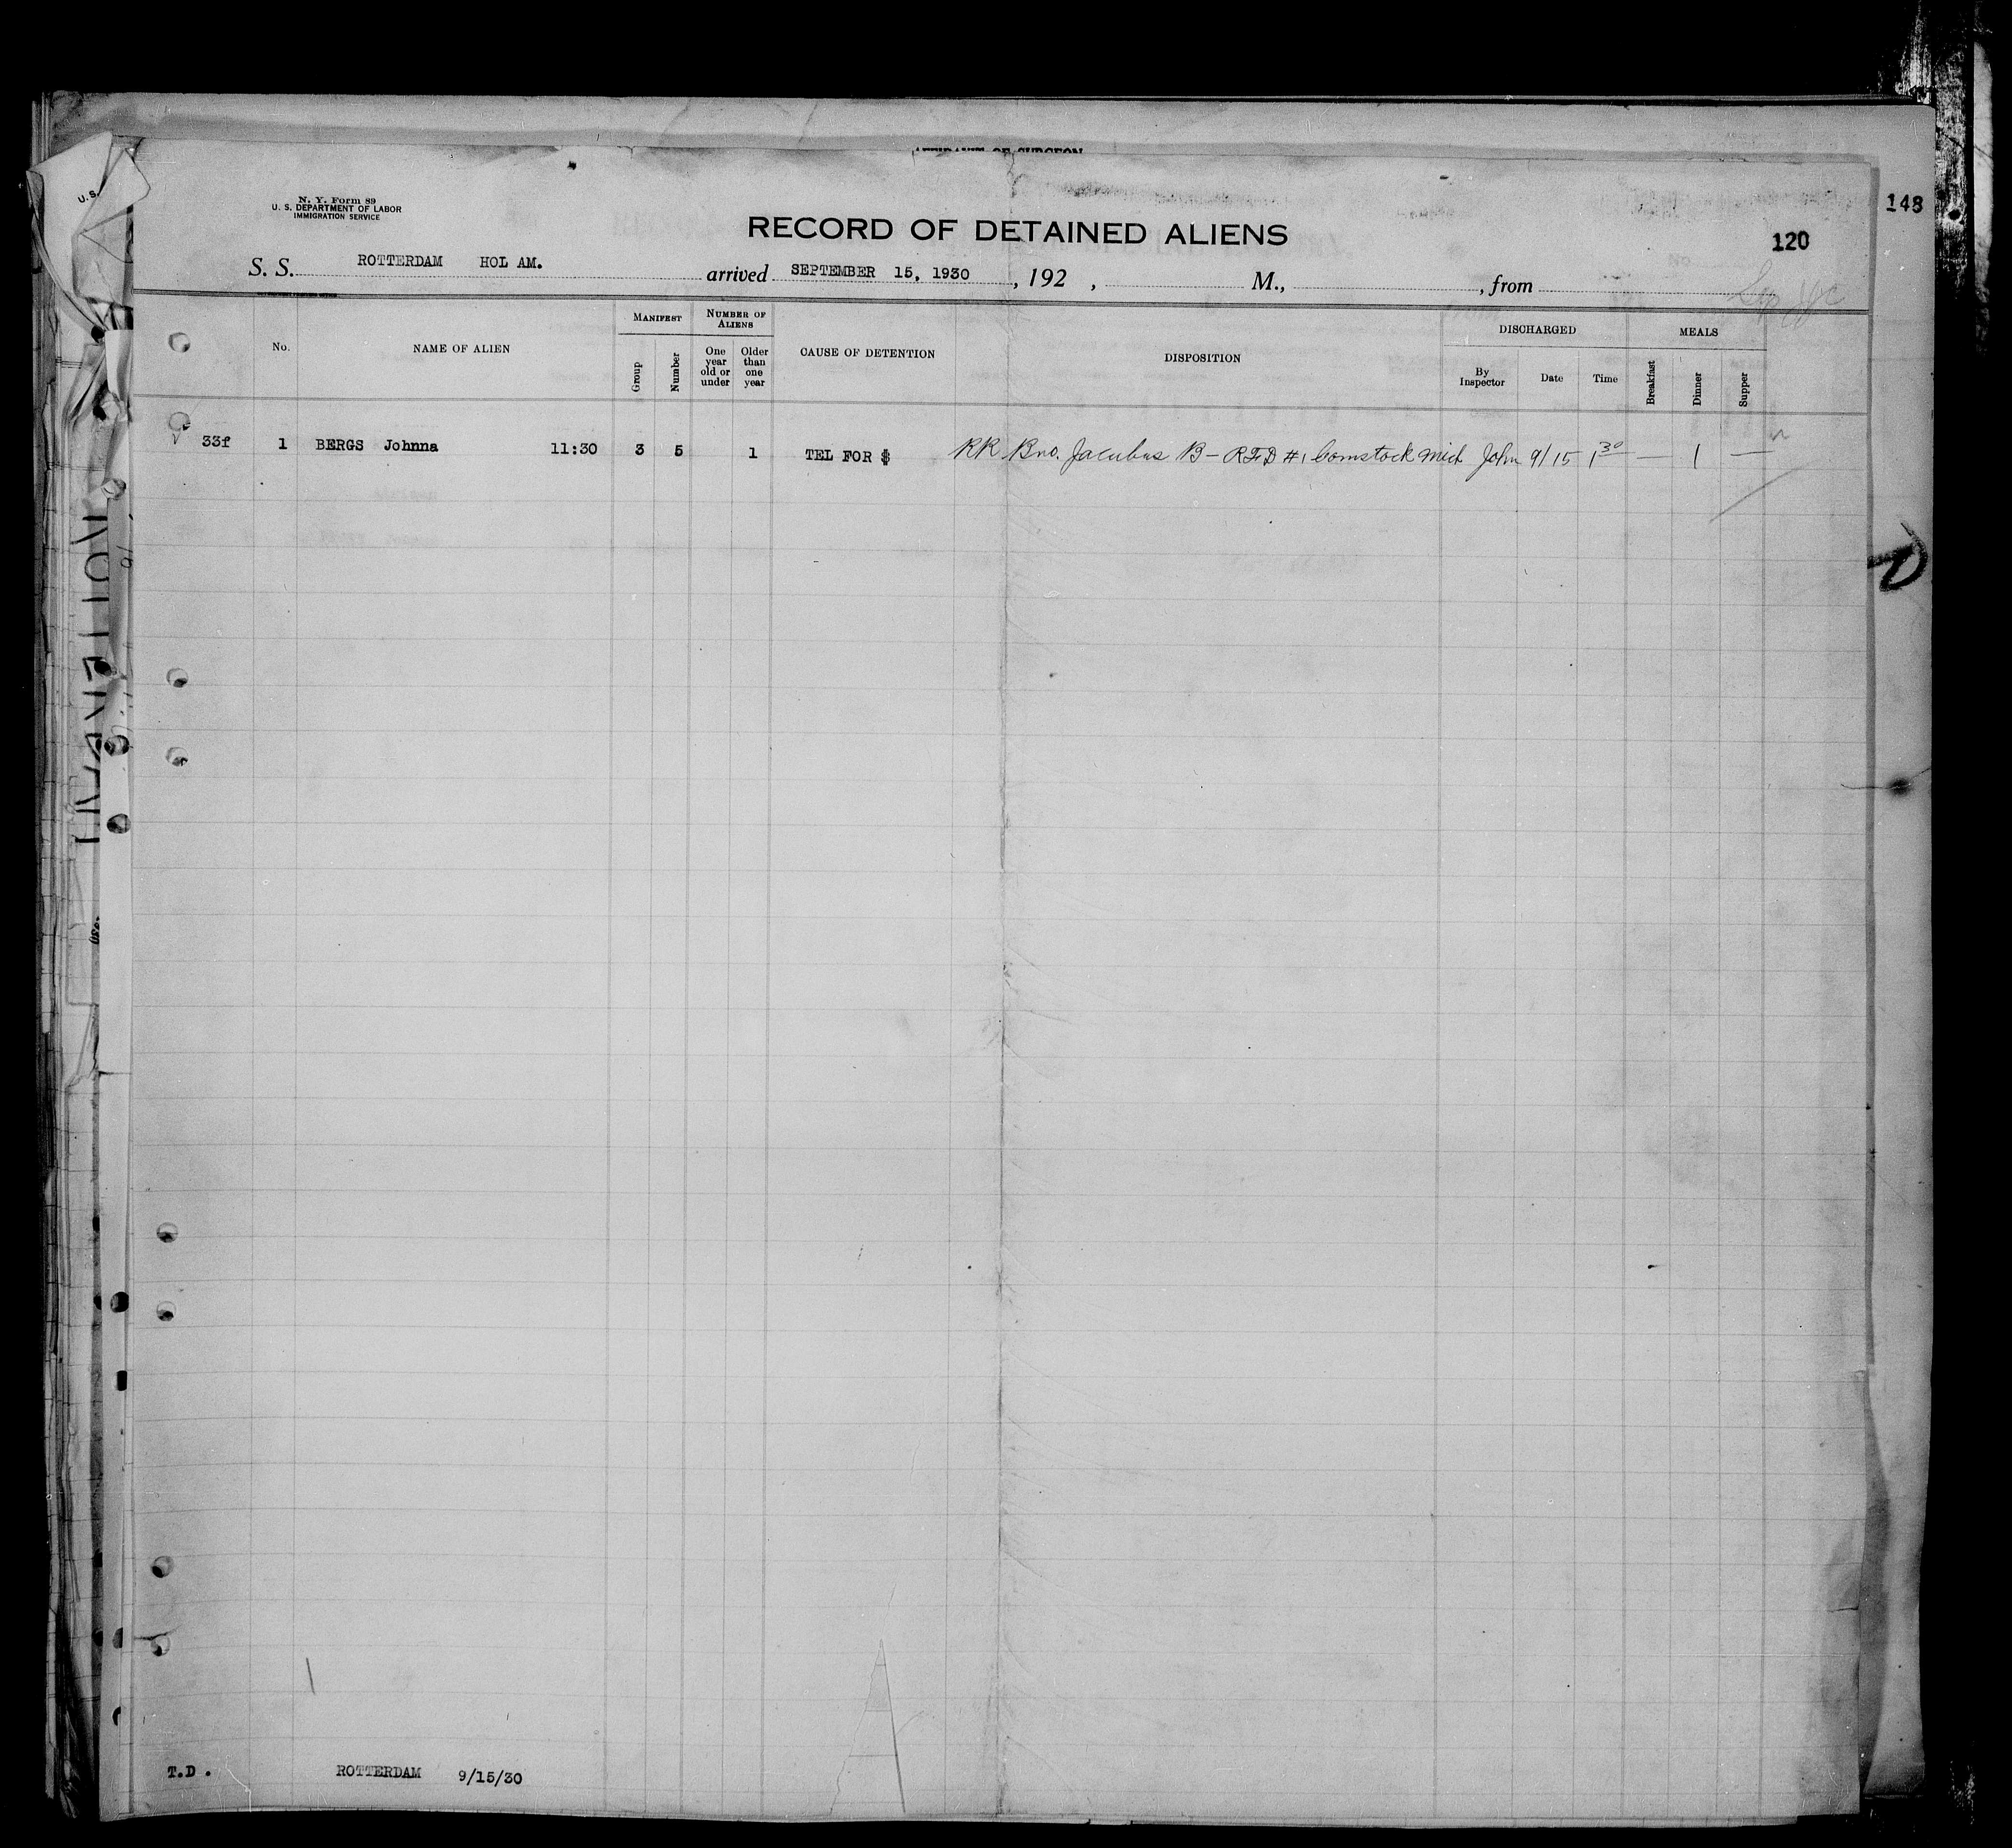 AFFIDAVIT OF SURGEON
U. S.
N. Y. Form 89
U. S. DEPARTMENT OF LABOR
IMMIGRATION SERVICE
148
RECORD OF DETAINED ALIENS
120
S. S. ROTTERDAM HOL AM. arrived SEPTEMBER 15, 1930, 192 , M., , from
No. NAME OF ALIEN MANIFEST NUMBER OF ALIENS CAUSE OF DETENTION DISPOSITION DISCHARGED MEALS
Group Number One year old or under Older than one year By Inspector Date Time Breakfast Dinner Supper
33f 1 BERGS Johnna 11:30 3 5 1 TEL FOR $ RR Bro. Jacobus B - RFD #1 Comstock Mich John 9/15 1 30 — 1 —
T.D. ROTTERDAM 9/15/30